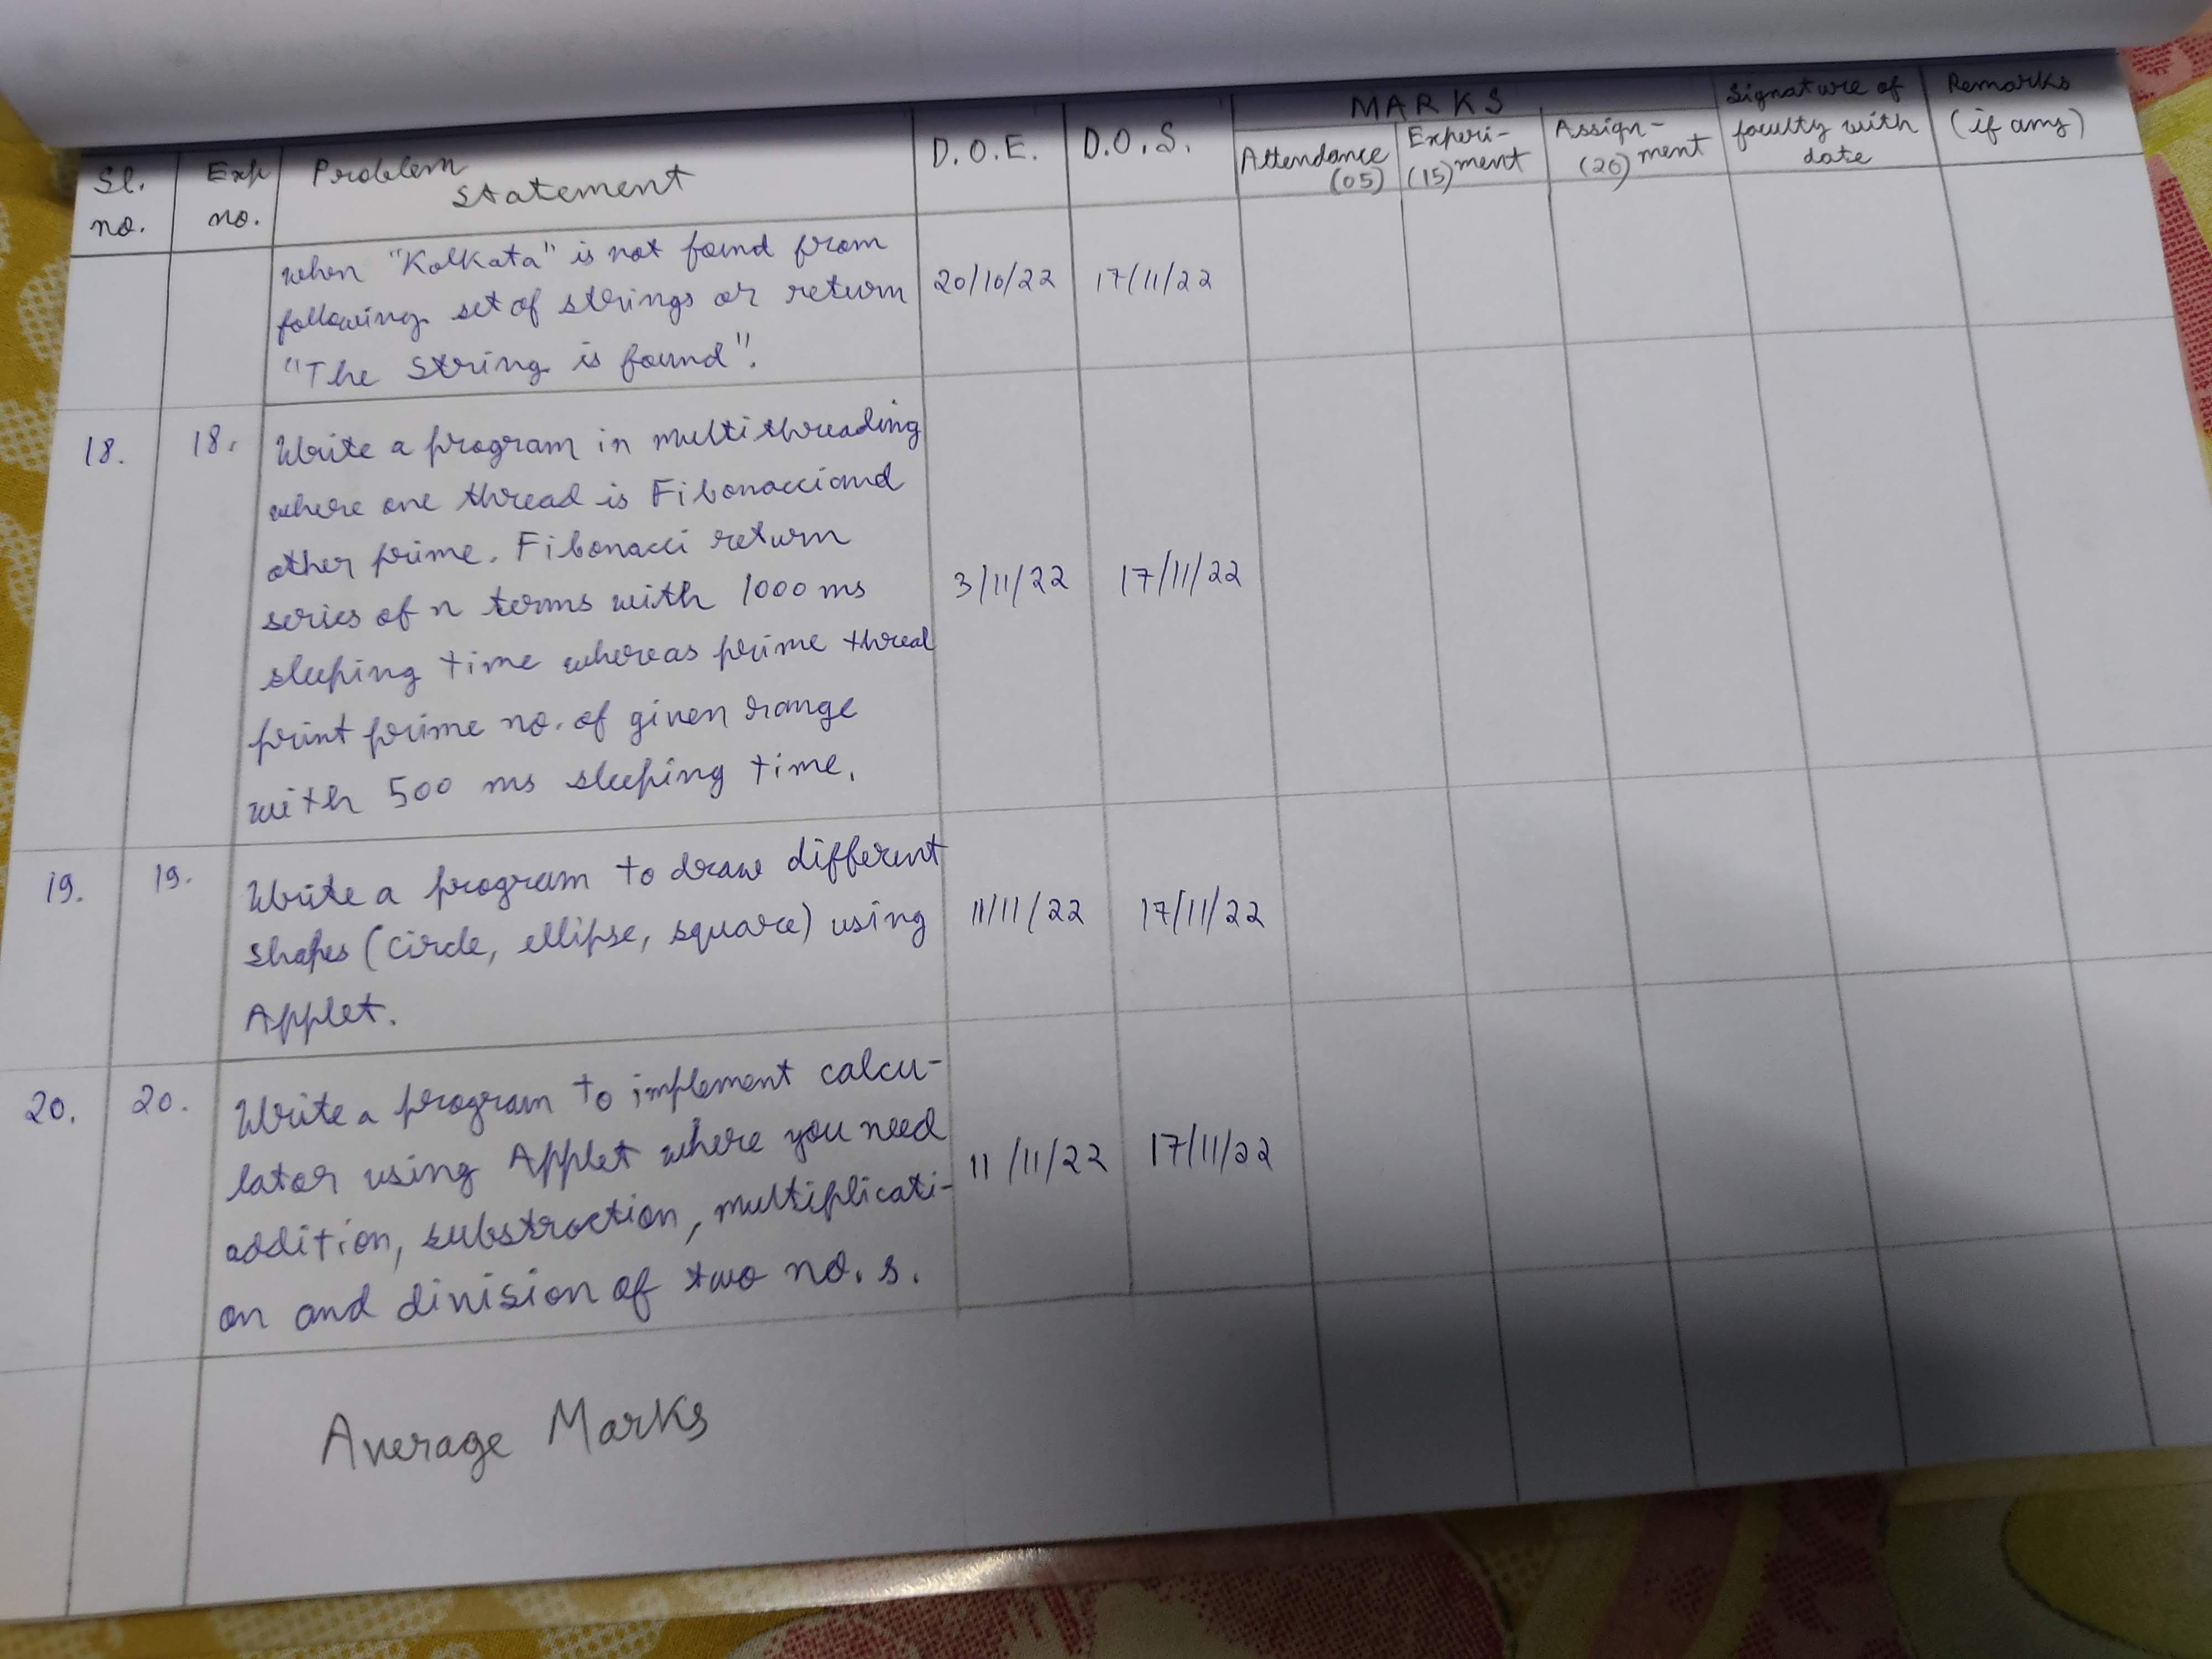 MARKS
Sl. no. Exp no. Problem Statement D.O.E. D.O.S. Attendance (05) Experi-ment (15) Assign-ment (20) Signature of faculty with date Remarks (if any)
when "Kolkata" is not found from
following set of strings or return
"The String is found".
20/10/22 17/11/22
18. 18. Write a program in multithreading
where one thread is Fibonacci and
other prime. Fibonacci return
series of n terms with 1000 ms
sleeping time whereas prime thread
print prime no. of given range
with 500 ms sleeping time.
3/11/22 17/11/22
19. 19. Write a program to draw different
shapes (circle, ellipse, square) using
Applet.
11/11/22 17/11/22
20. 20. Write a program to implement calcu-
lator using Applet where you need
addition, substraction, multiplicati-
on and division of two no.s.
11/11/22 17/11/22
Average Marks